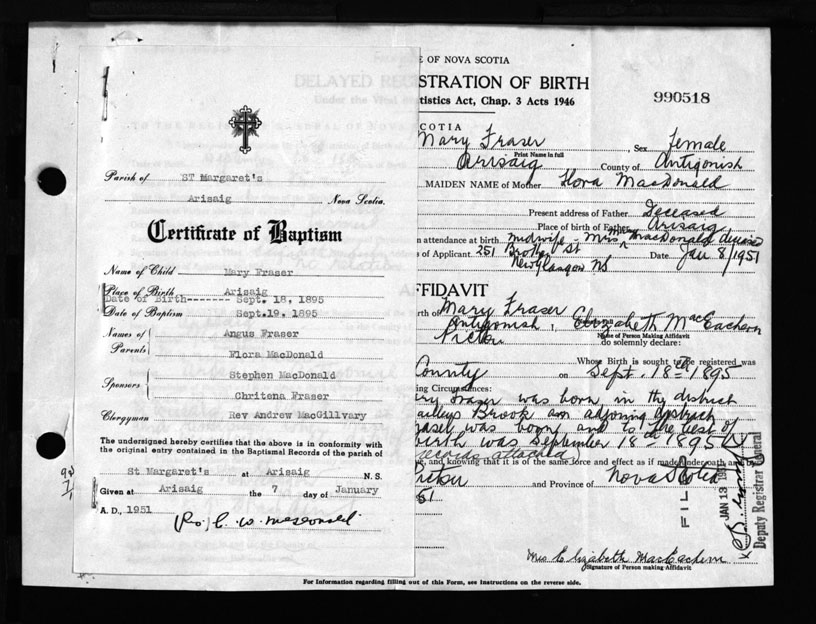 Parish of ST Margaret's
Arisaig Nova Scotia.
Certificate of Baptism
Name of Child Mary Fraser
Place of Birth Arisaig
Date of Birth------- Sept. 18, 1895
Date of Baptism Sept.19, 1895
Names of Parents Angus Fraser
Flora MacDonald
Sponsors Stephen MacDonald
Chritena Fraser
Clergyman Rev Andrew MacGillvary
The undersigned hereby certifies that the above is in conformity with
the original entry contained in the Baptismal Records of the parish of
St Margaret's at Arisaig N.S.
Given at Arisaig the 7 day of January
A. D., 1951
E OF NOVA SCOTIA
STRATION OF BIRTH
tistics Act, Chap. 3 Acts 1946
990518
COTIA
Mary Fraser, Sex female
Print Name in full
Arisaig County of Antigonish
MAIDEN NAME of Mother Flora MacDonald
Present address of Father Deceased
Place of birth of Father Arisaig
n attendance at birth midwife - Mrs MacDonald deceased
s of Applicant 251 St Date Jan 8/1951
New Glasgow NS
FFIDAVIT
irth of Mary Fraser
Antigonish I, Elizabeth MacEachern
Name of Person Making Affidavit
Pictou do solemnly declare:
Whose Birth is sought to be registered was
County on Sept. 18th 1895
ing Circumstances:
ary Fraser was born in the district
aileys Brook an adjoining district
was born and to the best of
birth was September 18th 1895
records attached)
, and knowing that it is of the same force and effect as if made under oath
Pictou and Province of Nova Scotia
51
FIL
JAN 13
Deputy Registrar General
Mrs Elizabeth MacEachern
Signature of Person making Affidavit
For Information regarding filling out of this Form, see Instructions on the reverse side.